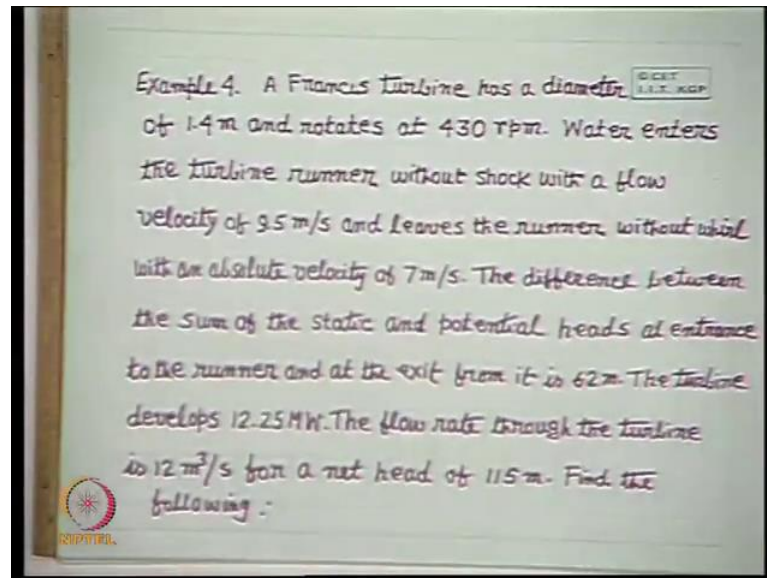 Example 4. A Francis turbine has a diameter
© CET
I.I.T. KGP
of 1.4 m and rotates at 430 rpm. Water enters
the turbine runner without shock with a flow
velocity of 9.5 m/s and leaves the runner without whirl
with an absolute velocity of 7 m/s. The difference between
the sum of the static and potential heads at entrance
to the runner and at the exit from it is 62 m. The turbine
develops 12.25 MW. The flow rate through the turbine
is 12 m³/s for a net head of 115 m. Find the
following :
NPTEL